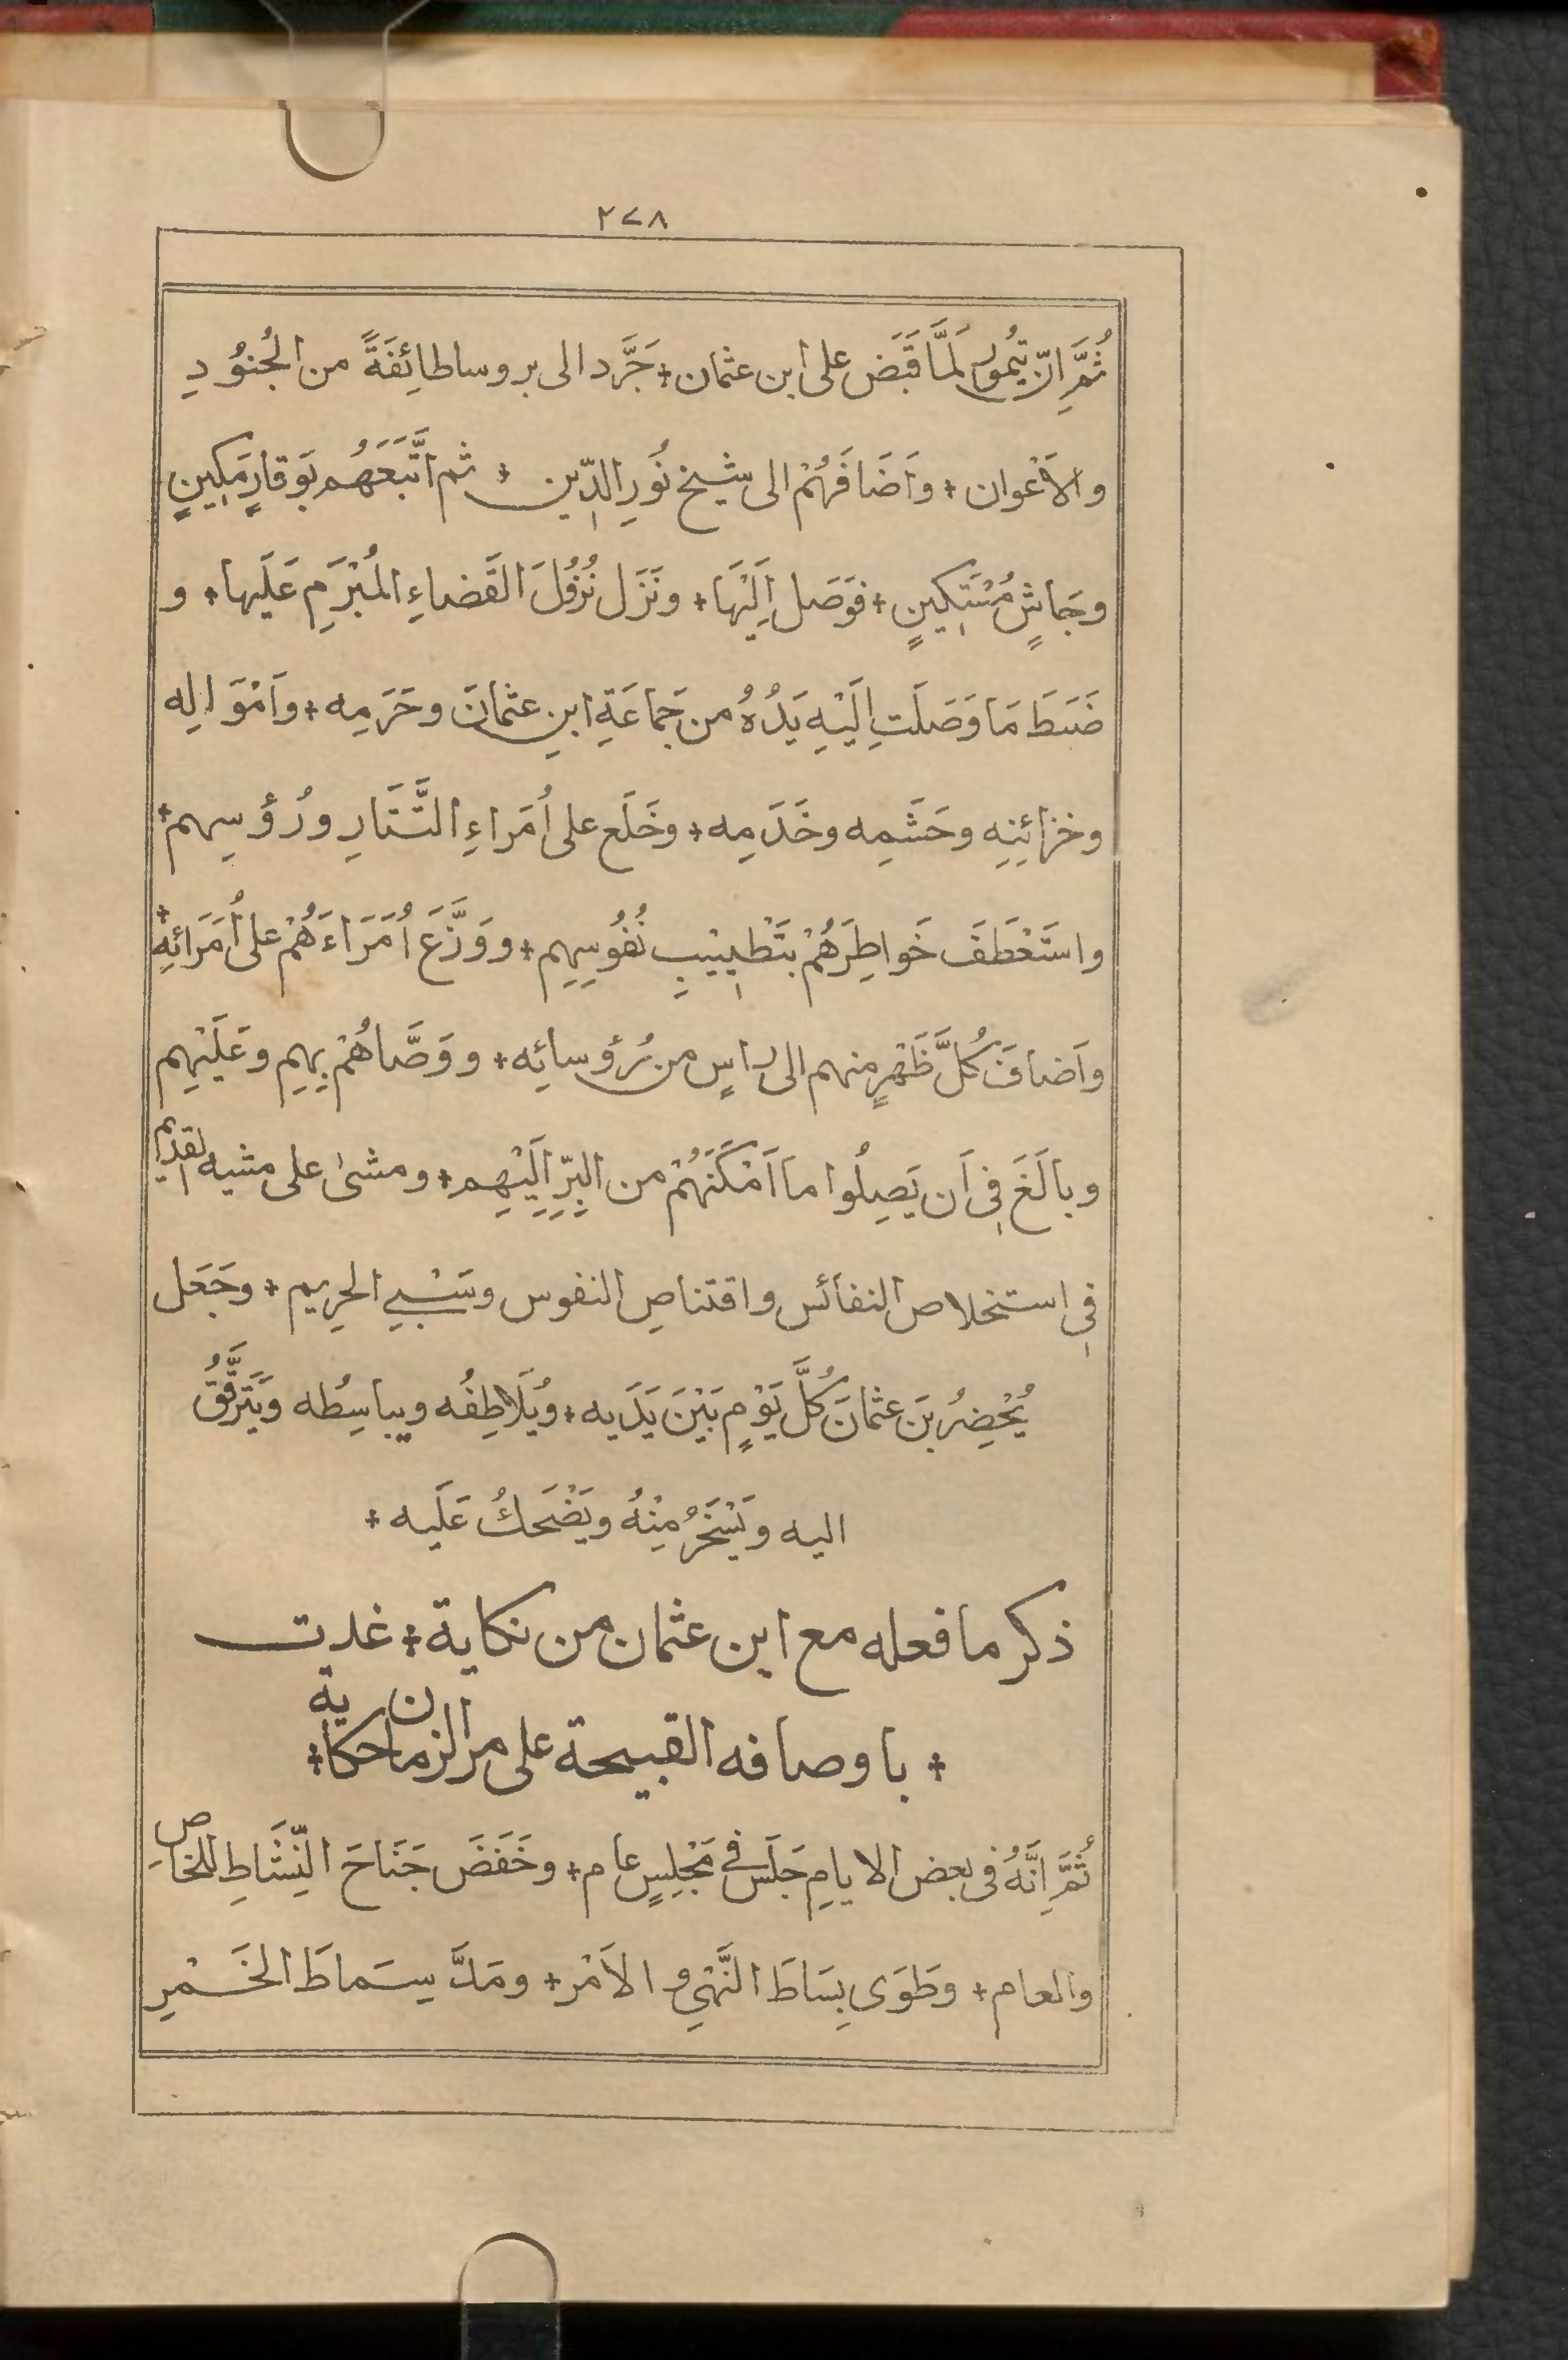 ٢٧٨
ثُمَّ اِنّ تِيمُور لَمَّا قَبَض على ابن عثمان + جَرَّد الى بروسا طائِفَةً من الجُنوُدِ
والاَعْوان + واَضَافَهُمْ الى شيخ نُورِ الدِّين + ثم اتَّبَعَهُم بِوَقارٍ مَكِينٍ
وجَاشٍ مُسْتَكِينٍ + فوَصَل اِلَيْهَا + ونَزَل نُزُولَ القَضاءِ المُبْرَمِ عَلَيها + و
ضَبَطَ مَا وَصَلَتِ اِلَيْهِ يَدُهُ من جَمَاعَةِ ابنِ عثمانَ وحَرَمِه + واَمْوَالِه
وخزائِنِه وحَشَمِه وخَدَمِه + وخَلَع على اُمَراءِ التَّتَارِ ورُؤسِهم +
واستَعْطَفَ خَواطِرَهُمْ بتَطْيِيبِ نُفُوسِهِم + ووَزَّعَ اُمَرَاءَهُمْ على اُمَرَائهِ +
واَضافَ كُلَّ ظَهْرٍ منهم الى راسٍ من رُؤسائِه + ووَصَّاهُمْ بِهِم وعَلَيْهِم
وبالَغَ فِي اَن يَصِلُوا ما اَمْكَنَهُمْ من البِرِّ اِلَيْهِم + ومشىٰ على مشيه القديم
فِي استخلاص النفائس واقتناصِ النفوس وسَبْيِ الحَرِيم + وجَعَل
يُحْضِرُ بنَ عثمانَ كُلَّ يَوْمٍ بَيْنَ يَدَيه + ويُلَاطِفُه ويباسِطُه ويَتَرَقَّقُ
اليه ويَسْخَرُ مِنْهُ ويَضْحَكُ عَلَيه +
ذكر ما فعله مع ابن عثمان من نكاية + غدت
+ باوصافه القبيحة على مر الزمان حكاية +
ثُمَّ اِنَّهُ فى بعض الايامِ جَلَسَ فى مَجْلِسٍ عام + وخَفَضَ جَنَاحَ النَّشَاطِ للخاصِ
والعام + وطَوَى بِسَاطَ النَّهْيِ والاَمْر + ومَدَّ سِمَاطَ الخَمْرِ